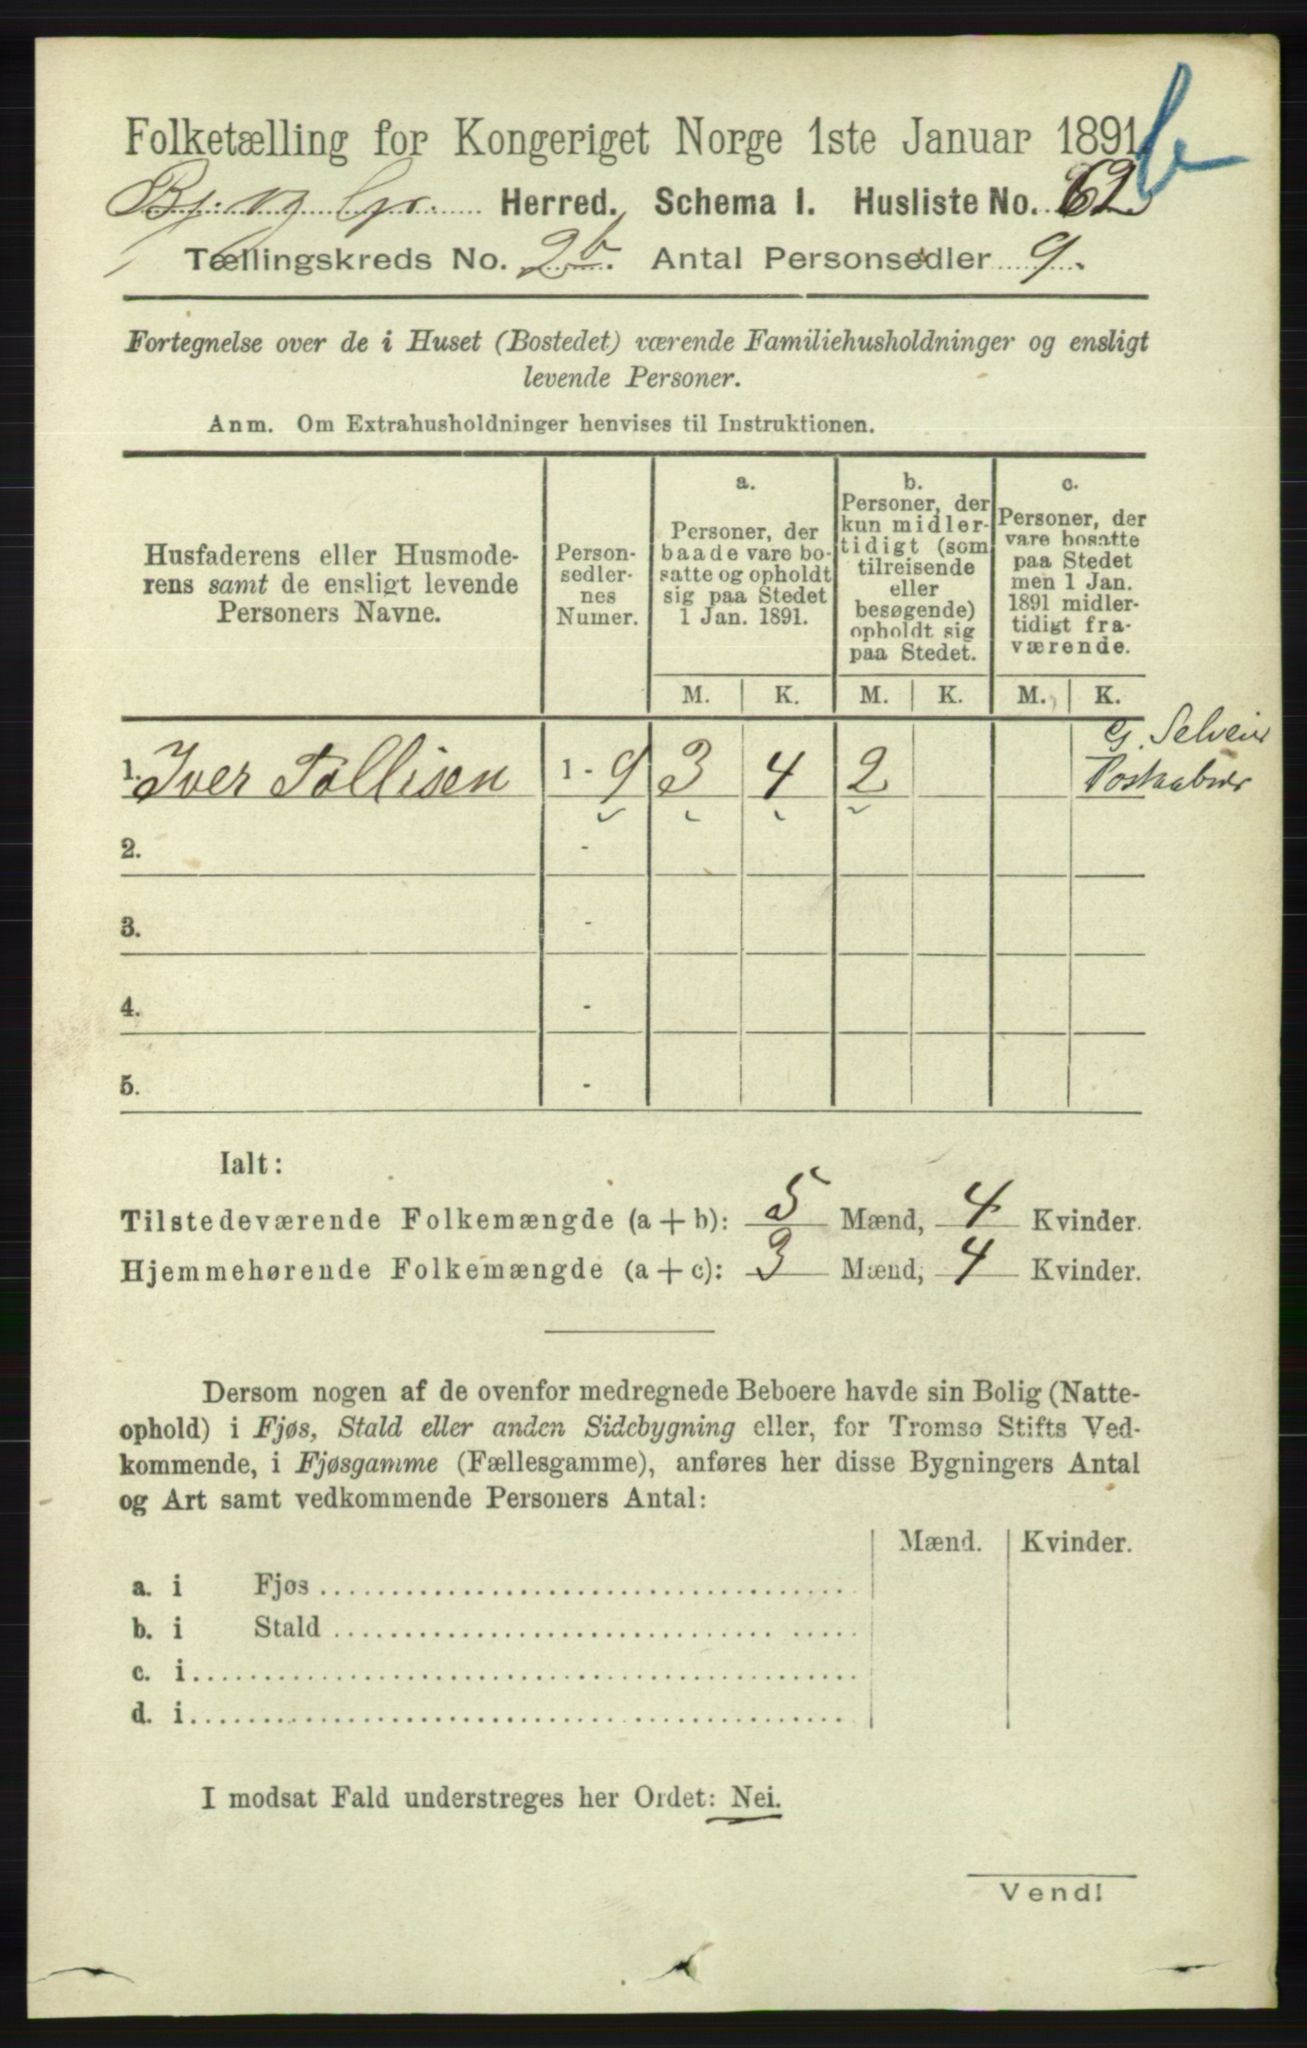 Folketælling for Kongeriget Norge 1ste Januar 1891
Herred. Schema I. Husliste No. 62 b
Tællingskreds No. 2b. Antal Personsedler 9.
Fortegnelse over de i Huset (Bostedet) værende Familiehusholdninger og ensligt
levende Personer.
Anm. Om Extrahusholdninger henvises til Instruktionen.
Husfaderens eller Husmode-
rens samt de ensligt levende
Personers Navne.
Person-
sedler-
nes
Numer.
a.
Personer, der
baade vare bo-
satte og opholdt
sig paa Stedet
1 Jan. 1891.
b.
Personer, der
kun midler-
tidigt (som
tilreisende
eller
besøgende)
opholdt sig
paa Stedet.
c.
Personer, der
vare bosatte
paa Stedet
men 1 Jan.
1891 midler-
tidigt fra-
værende.
M. K. M. K. M. K.
1. Iver Tollisen 1 - 9 3 4 2
G. Selveier
Postaabner
2. -
3. -
4. -
5. -
Ialt:
Tilstedeværende Folkemængde (a + b): 5 Mænd, 4 Kvinder.
Hjemmehørende Folkemængde (a + c): 3 Mænd, 4 Kvinder.
Dersom nogen af de ovenfor medregnede Beboere havde sin Bolig (Natte-
ophold) i Fjøs, Stald eller anden Sidebygning eller, for Tromsø Stifts Ved-
kommende, i Fjøsgamme (Fællesgamme), anføres her disse Bygningers Antal
og Art samt vedkommende Personers Antal:
Mænd. Kvinder.
a. i Fjøs
b. i Stald
c. i
d. i
I modsat Fald understreges her Ordet: Nei.
Vend!